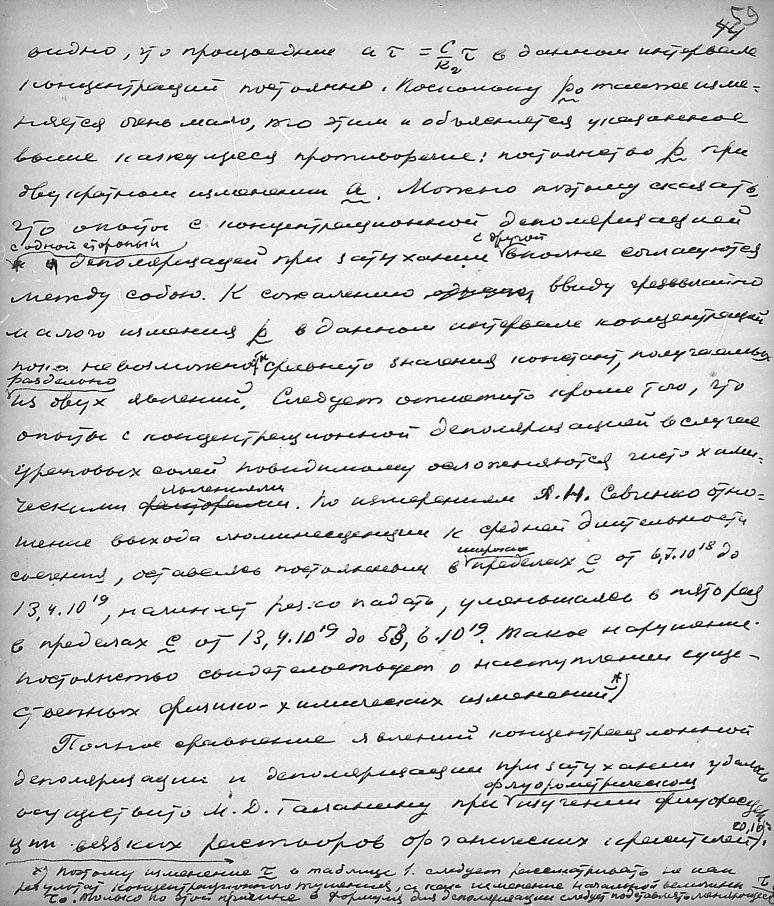 59
44
видно, что произведение aτ = C/R₂ τ в данном интервале
концентраций постоянно. Поскольку p₀ также изме-
няется очень мало, то этим и объясняется указанное
выше кажущееся противоречие: постоянство p при
двукратном изменении a. Можно поэтому сказать,
что опыты с концентрационной деполяризацией
с одной стороны и с другой
деполяризацией при затухании вполне согласуются
между собою. К сожалению ввиду чрезвычайно
малого изменения p в данном интервале концентраций
пока невозможно сравнить значения констант, получаемых
раздельно
из двух явлений. Следует отметить кроме того, что
опыты с концентрационной деполяризацией в случае
урановых солей повидимому осложняются чисто хими-
явлениями
ческими факторами. По измерениям А.Н. Севченко отно-
шение выхода люминесценции к средней длительности
широких
свечения, оставаясь постоянным в пределах c от 6,7.10¹⁸ до
13,4.10¹⁹, начинает резко падать, уменьшаясь в пять раз
в пределах c от 13,4.10¹⁹ до 53,6.10¹⁹. Такое нарушение
постоянства свидетельствует о наступлении суще-
ственных физико-химических изменений*)
Полное сравнение явлений концентрационной
деполяризации и деполяризации при затухании удалось
флуорометрическом
осуществить М.Д. Галанину при изучении флуоресцен-
ции вязких растворов органических красителей.
20,10
x) Поэтому изменение τ в таблице 1. следует рассматривать не как
результат концентрационного тушения, а как изменение начальной величины τ₀
Только по этой причине в формулы для деполяризации следует подставлять меняющееся τ